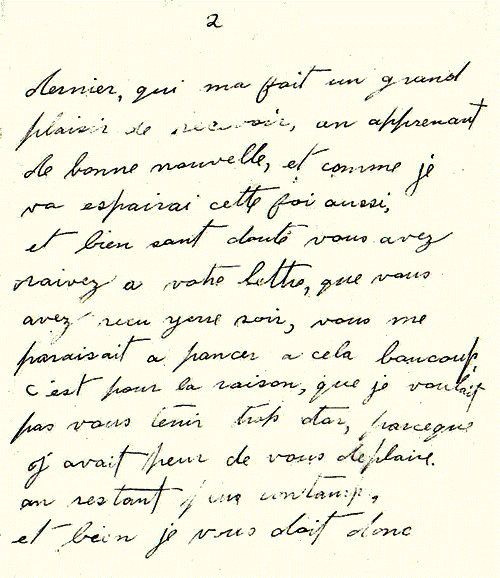 2
dernier, qui ma fait un grand
plaisir de recevoir, an apprenant
de bonne nouvelle, et comme je
va espairai cette foi aussi,
et bien sant doute vous avez
raivez a votre lettre, que vous
avez recu yerre soir, vous me
paraisait a pancer a cela baucoup,
c'est pour la raison, que je voulait
pas vous tenir trop tar, parceque
j avait peur de vous deplaire.
an restant plus contamp,
et bien je vous doit donc